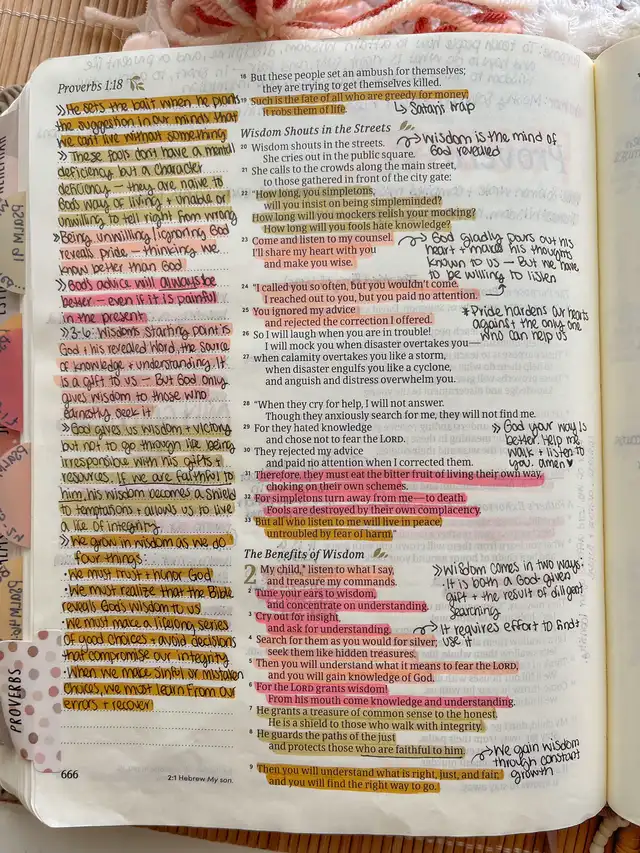 Proverbs 1:18
» He sets the bait when he plants
the suggestion in our minds that
we can't live without something
» These fools don't have a mental
deficiency but a character
deficiency – they are naive to
God's way of living + unable or
unwilling to tell right from wrong
» Being unwilling/ignoring God
reveals pride – thinking we
know better than God
» God's advice will always be
better – even if it is painful
in the present
» 3-6: Wisdom's starting point is
God + his revealed Word, the source
of knowledge + understanding. It
is a gift to us – But God only
gives wisdom to those who
earnestly seek it
» God gives us wisdom + victory
but not to go through life being
irresponsible with his gifts +
resources. If we are faithful to
him, his wisdom becomes a shield
to temptations + allows us to live
a life of integrity
» We grow in wisdom as we do
four things:
• We must trust + honor God
• We must realize that the Bible
reveals God's wisdom to us
• We must make a lifelong series
of good choices + avoid decisions
that compromise our integrity
• When we make sinful or mistaken
choices, we must learn from our
errors + recover
666
2:1 Hebrew My son.
18 But these people set an ambush for themselves;
they are trying to get themselves killed.
19 Such is the fate of all who are greedy for money;
it robs them of life.
Satan's trap
Wisdom Shouts in the Streets
Wisdom is the mind of
God revealed
20 Wisdom shouts in the streets.
She cries out in the public square.
21 She calls to the crowds along the main street,
to those gathered in front of the city gate:
22 "How long, you simpletons,
will you insist on being simpleminded?
How long will you mockers relish your mocking?
How long will you fools hate knowledge?
23 Come and listen to my counsel.
I'll share my heart with you
and make you wise.
God gladly pours out his
heart + makes his thoughts
known to us – But we have
to be willing to listen
24 "I called you so often, but you wouldn't come.
I reached out to you, but you paid no attention.
25 You ignored my advice
and rejected the correction I offered.
* Pride hardens our hearts
against the only one
who can help us
26 So I will laugh when you are in trouble!
I will mock you when disaster overtakes you—
27 when calamity overtakes you like a storm,
when disaster engulfs you like a cyclone,
and anguish and distress overwhelm you.
28 "When they cry for help, I will not answer.
Though they anxiously search for me, they will not find me.
29 For they hated knowledge
and chose not to fear the LORD.
30 They rejected my advice
and paid no attention when I corrected them.
» God your way is
better. Help me
walk + listen to
you. amen ♥
31 Therefore, they must eat the bitter fruit of living their own way,
choking on their own schemes.
32 For simpletons turn away from me—to death.
Fools are destroyed by their own complacency.
33 But all who listen to me will live in peace,
untroubled by fear of harm."
The Benefits of Wisdom
2 My child, listen to what I say,
and treasure my commands.
2 Tune your ears to wisdom,
and concentrate on understanding.
3 Cry out for insight,
and ask for understanding.
4 Search for them as you would for silver;
seek them like hidden treasures.
» Wisdom comes in two ways:
• It is both a God given
gift + the result of diligent
searching.
It requires effort to find +
use it
5 Then you will understand what it means to fear the LORD,
and you will gain knowledge of God.
6 For the LORD grants wisdom!
From his mouth come knowledge and understanding.
7 He grants a treasure of common sense to the honest.
He is a shield to those who walk with integrity.
8 He guards the paths of the just
and protects those who are faithful to him.
We gain wisdom
through constant
growth
9 Then you will understand what is right, just, and fair,
and you will find the right way to go.
PROVERBS